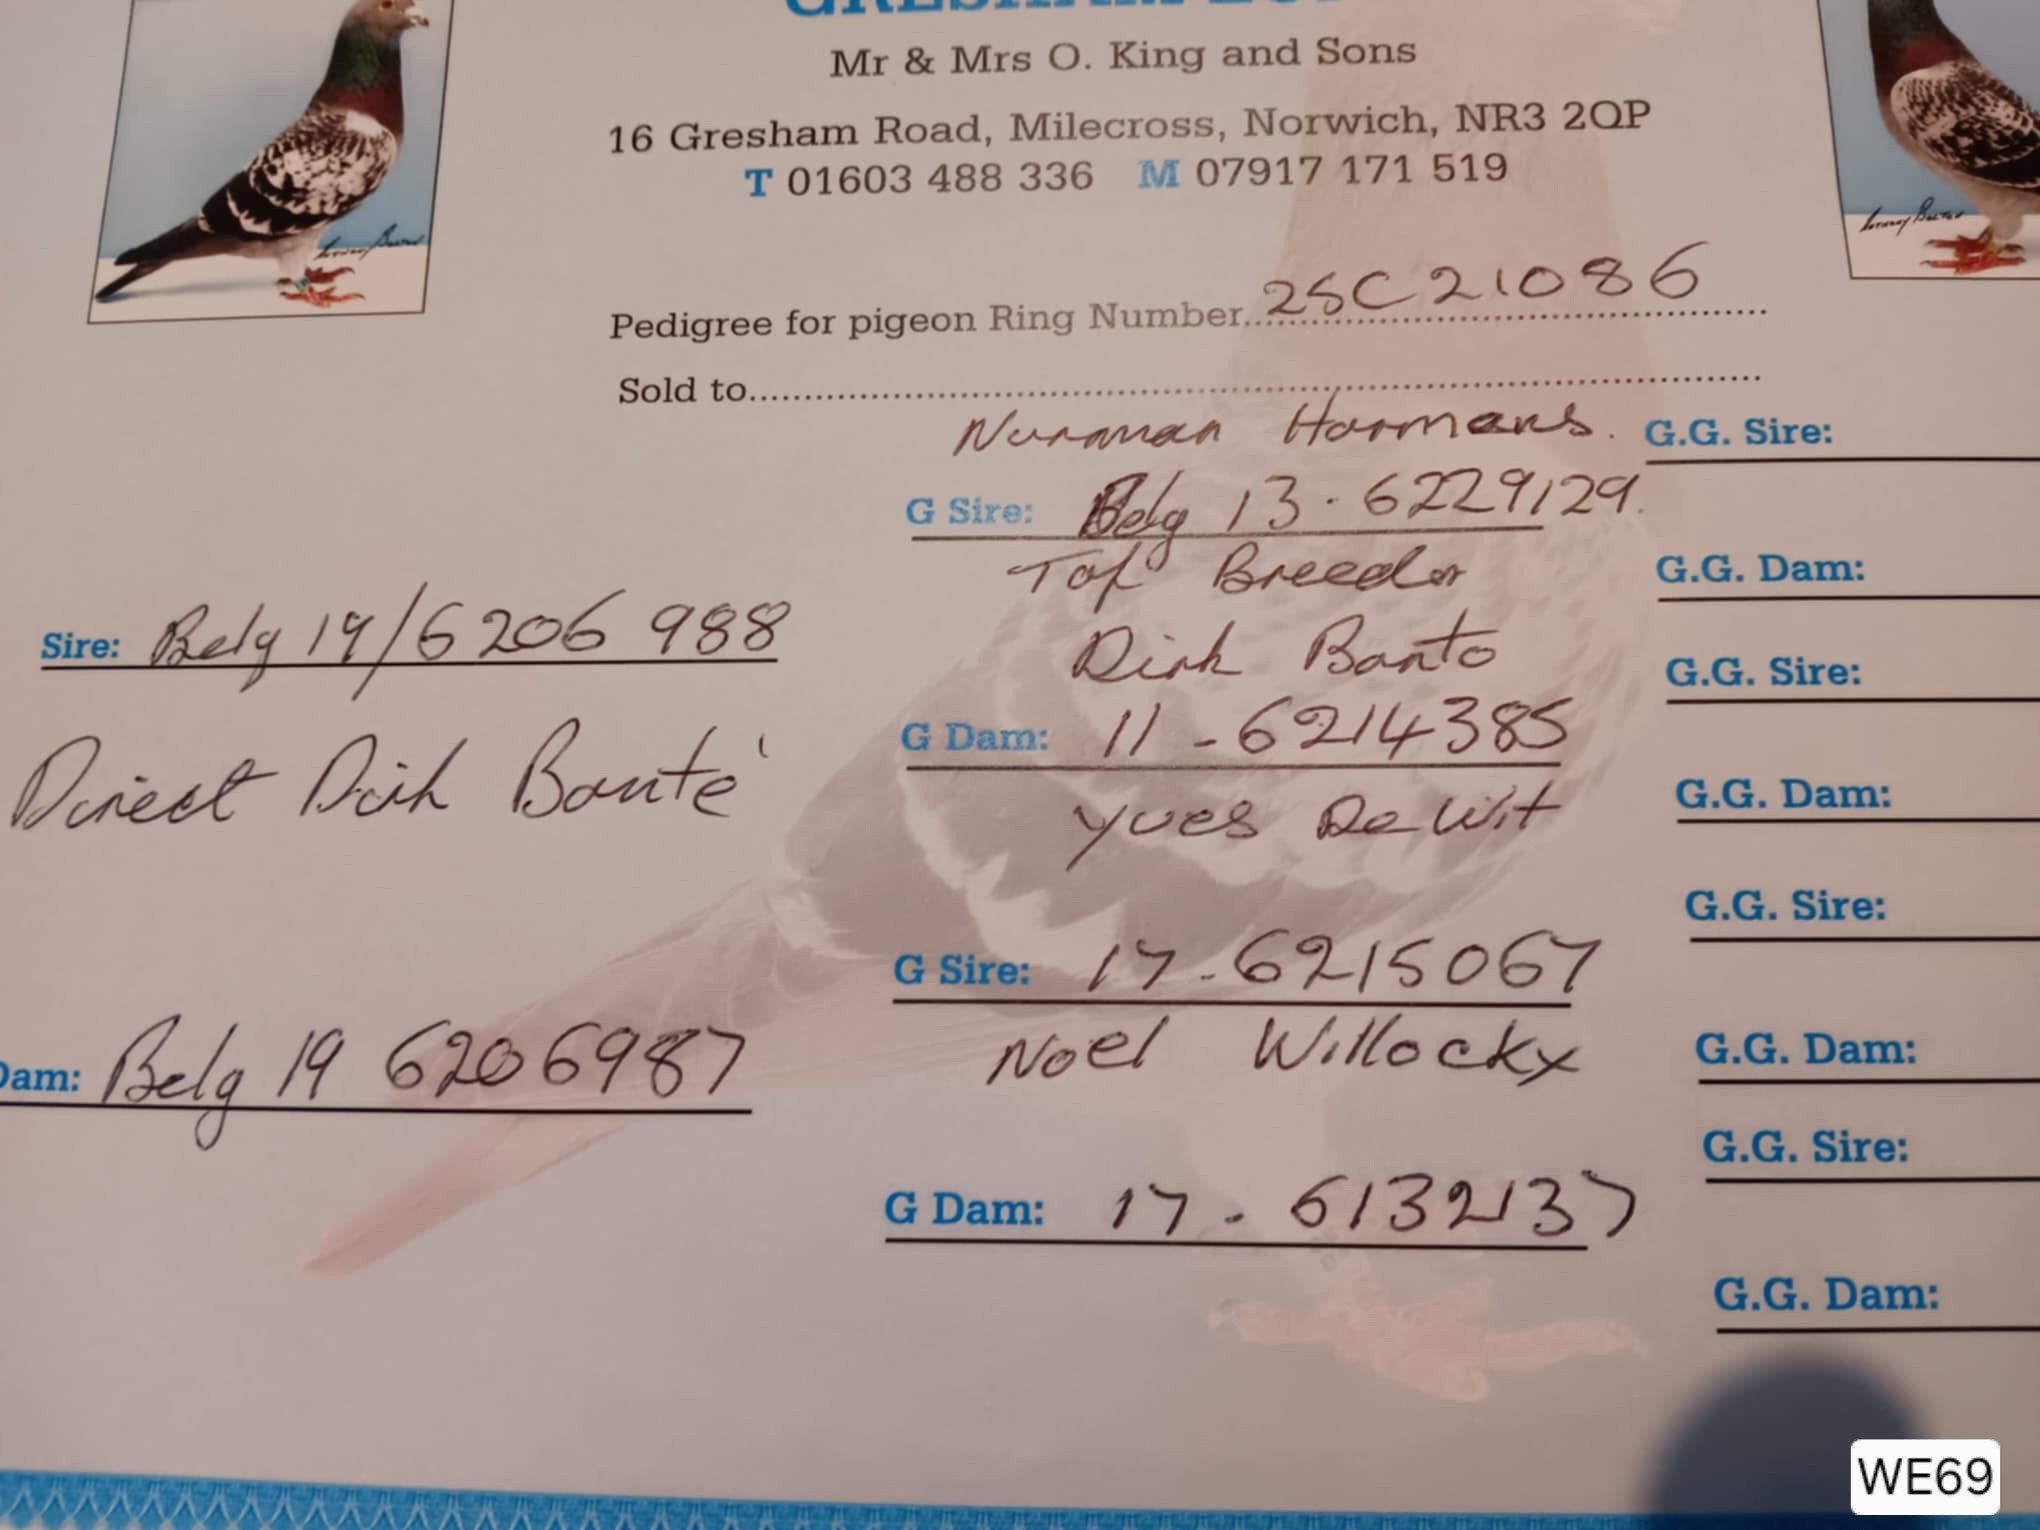 Mr & Mrs O. King and Sons
16 Gresham Road, Milecross, Norwich, NR3 2QP
T 01603 488 336 M 07917 171 519
Pedigree for pigeon Ring Number 25C21086
Sold to
Nurman Harmans.
G Sire: Belg 13.6229129.
Top Breeder
Dirk Banto
G Dam: 11-6214385
Yves De Wit
Sire: Belg 19/6206988
Direct Dirk Bonte'
G Sire: 17-6215067
Noel Willockx
Dam: Belg 19 6206987
G Dam: 17-6132137
G.G. Sire:
G.G. Dam:
G.G. Sire:
G.G. Dam:
G.G. Sire:
G.G. Dam:
G.G. Sire:
G.G. Dam:
WE69